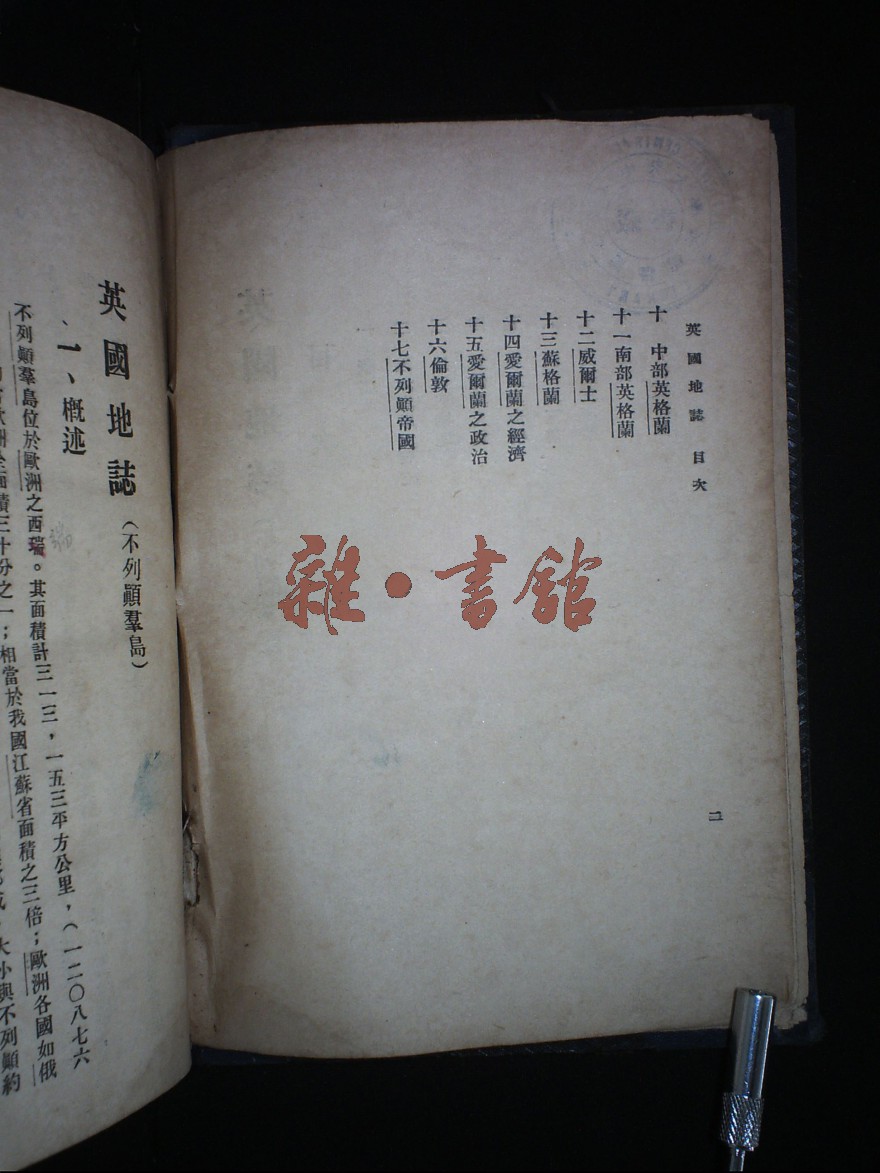 英國地誌 目次
二
十 中部英格蘭
十一南部英格蘭
十二威爾士
十三蘇格蘭
十四愛爾蘭之經濟
十五愛爾蘭之政治
十六倫敦
十七不列顛帝國
雜·書館
英國地誌(不列顛羣島)
一、概述
不列顛羣島位於歐洲之西瑞。其面積計三一三,一五三平方公里,(一二〇八七六
面積三十分之一;相當於我國江蘇省面積之三倍;歐洲各國如俄
大小與不列顛約